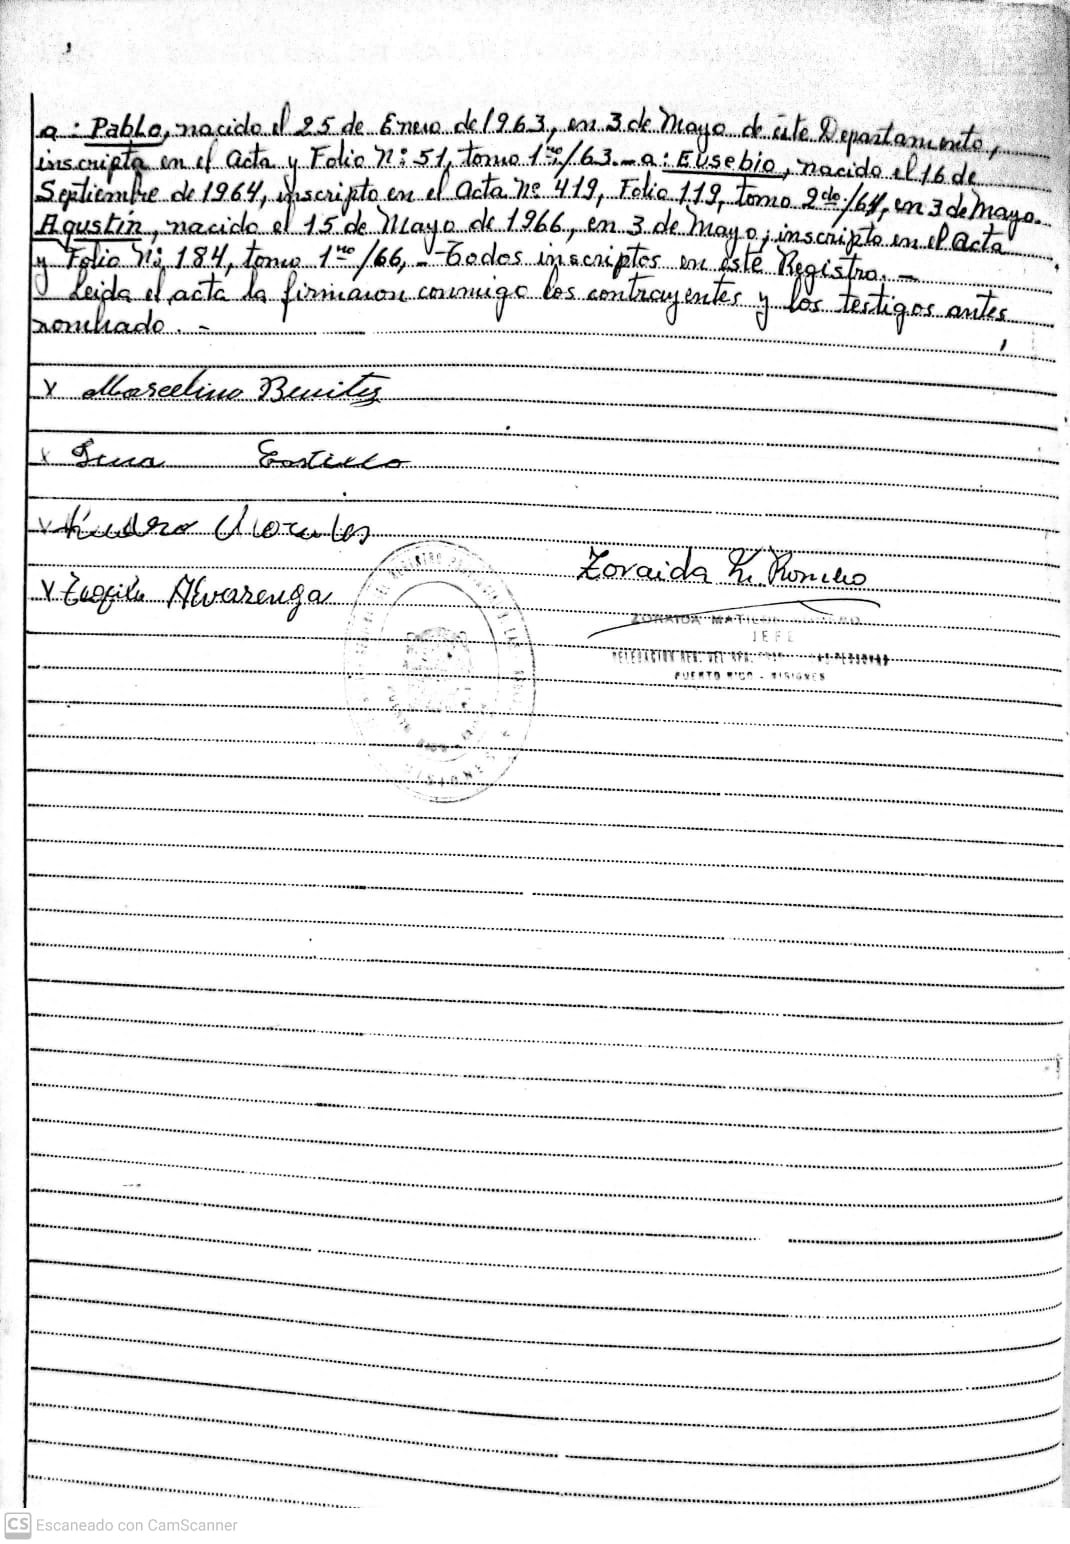 a : Pablo, nacido el 25 de Enero de 1963, en 3 de Mayo de éste Departamento,
inscripta en el Acta y Folio Nº 51, tomo 1ro/63.- a: Eusebio, nacido el 16 de
Septiembre de 1964, inscripto en el Acta Nº 419, Folio 119, tomo 2do/64, en 3 de Mayo.
Agustín, nacido el 15 de Mayo de 1966, en 3 de Mayo, inscripto en el Acta
y Folio Nº 184, tomo 1ro/66, - Todos inscriptos en éste Registro. -
Leida el acta la firmaron conmigo los contrayentes y los testigos antes
nombrado. -
x Marcelino Benitez
x
x Morales
x Alvarenga
Zoraida M. Romero
ZORAIDA MATILDE ROMERO
JEFE
PUERTO RICO - MISIONES
MISIONES
CS Escaneado con CamScanner